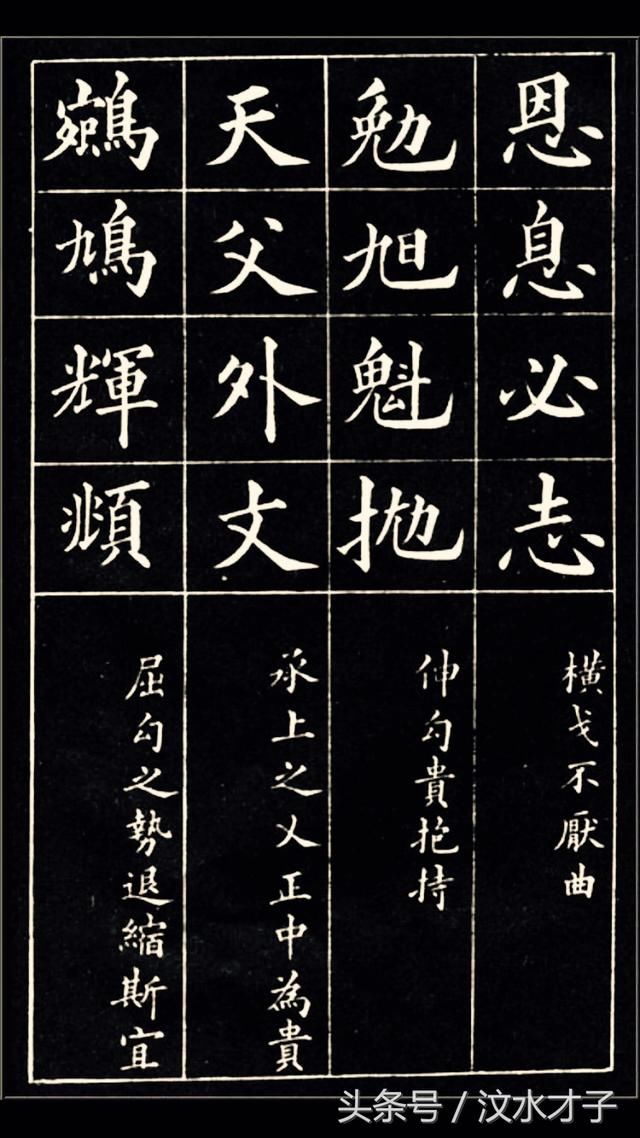 恩息必志
橫戈不厭曲
勉旭魁抛
伸勾貴抱持
天父外丈
承上之乂正中為貴
鳩輝頫
屈勾之勢退縮斯宜
头条号 / 汶水才子